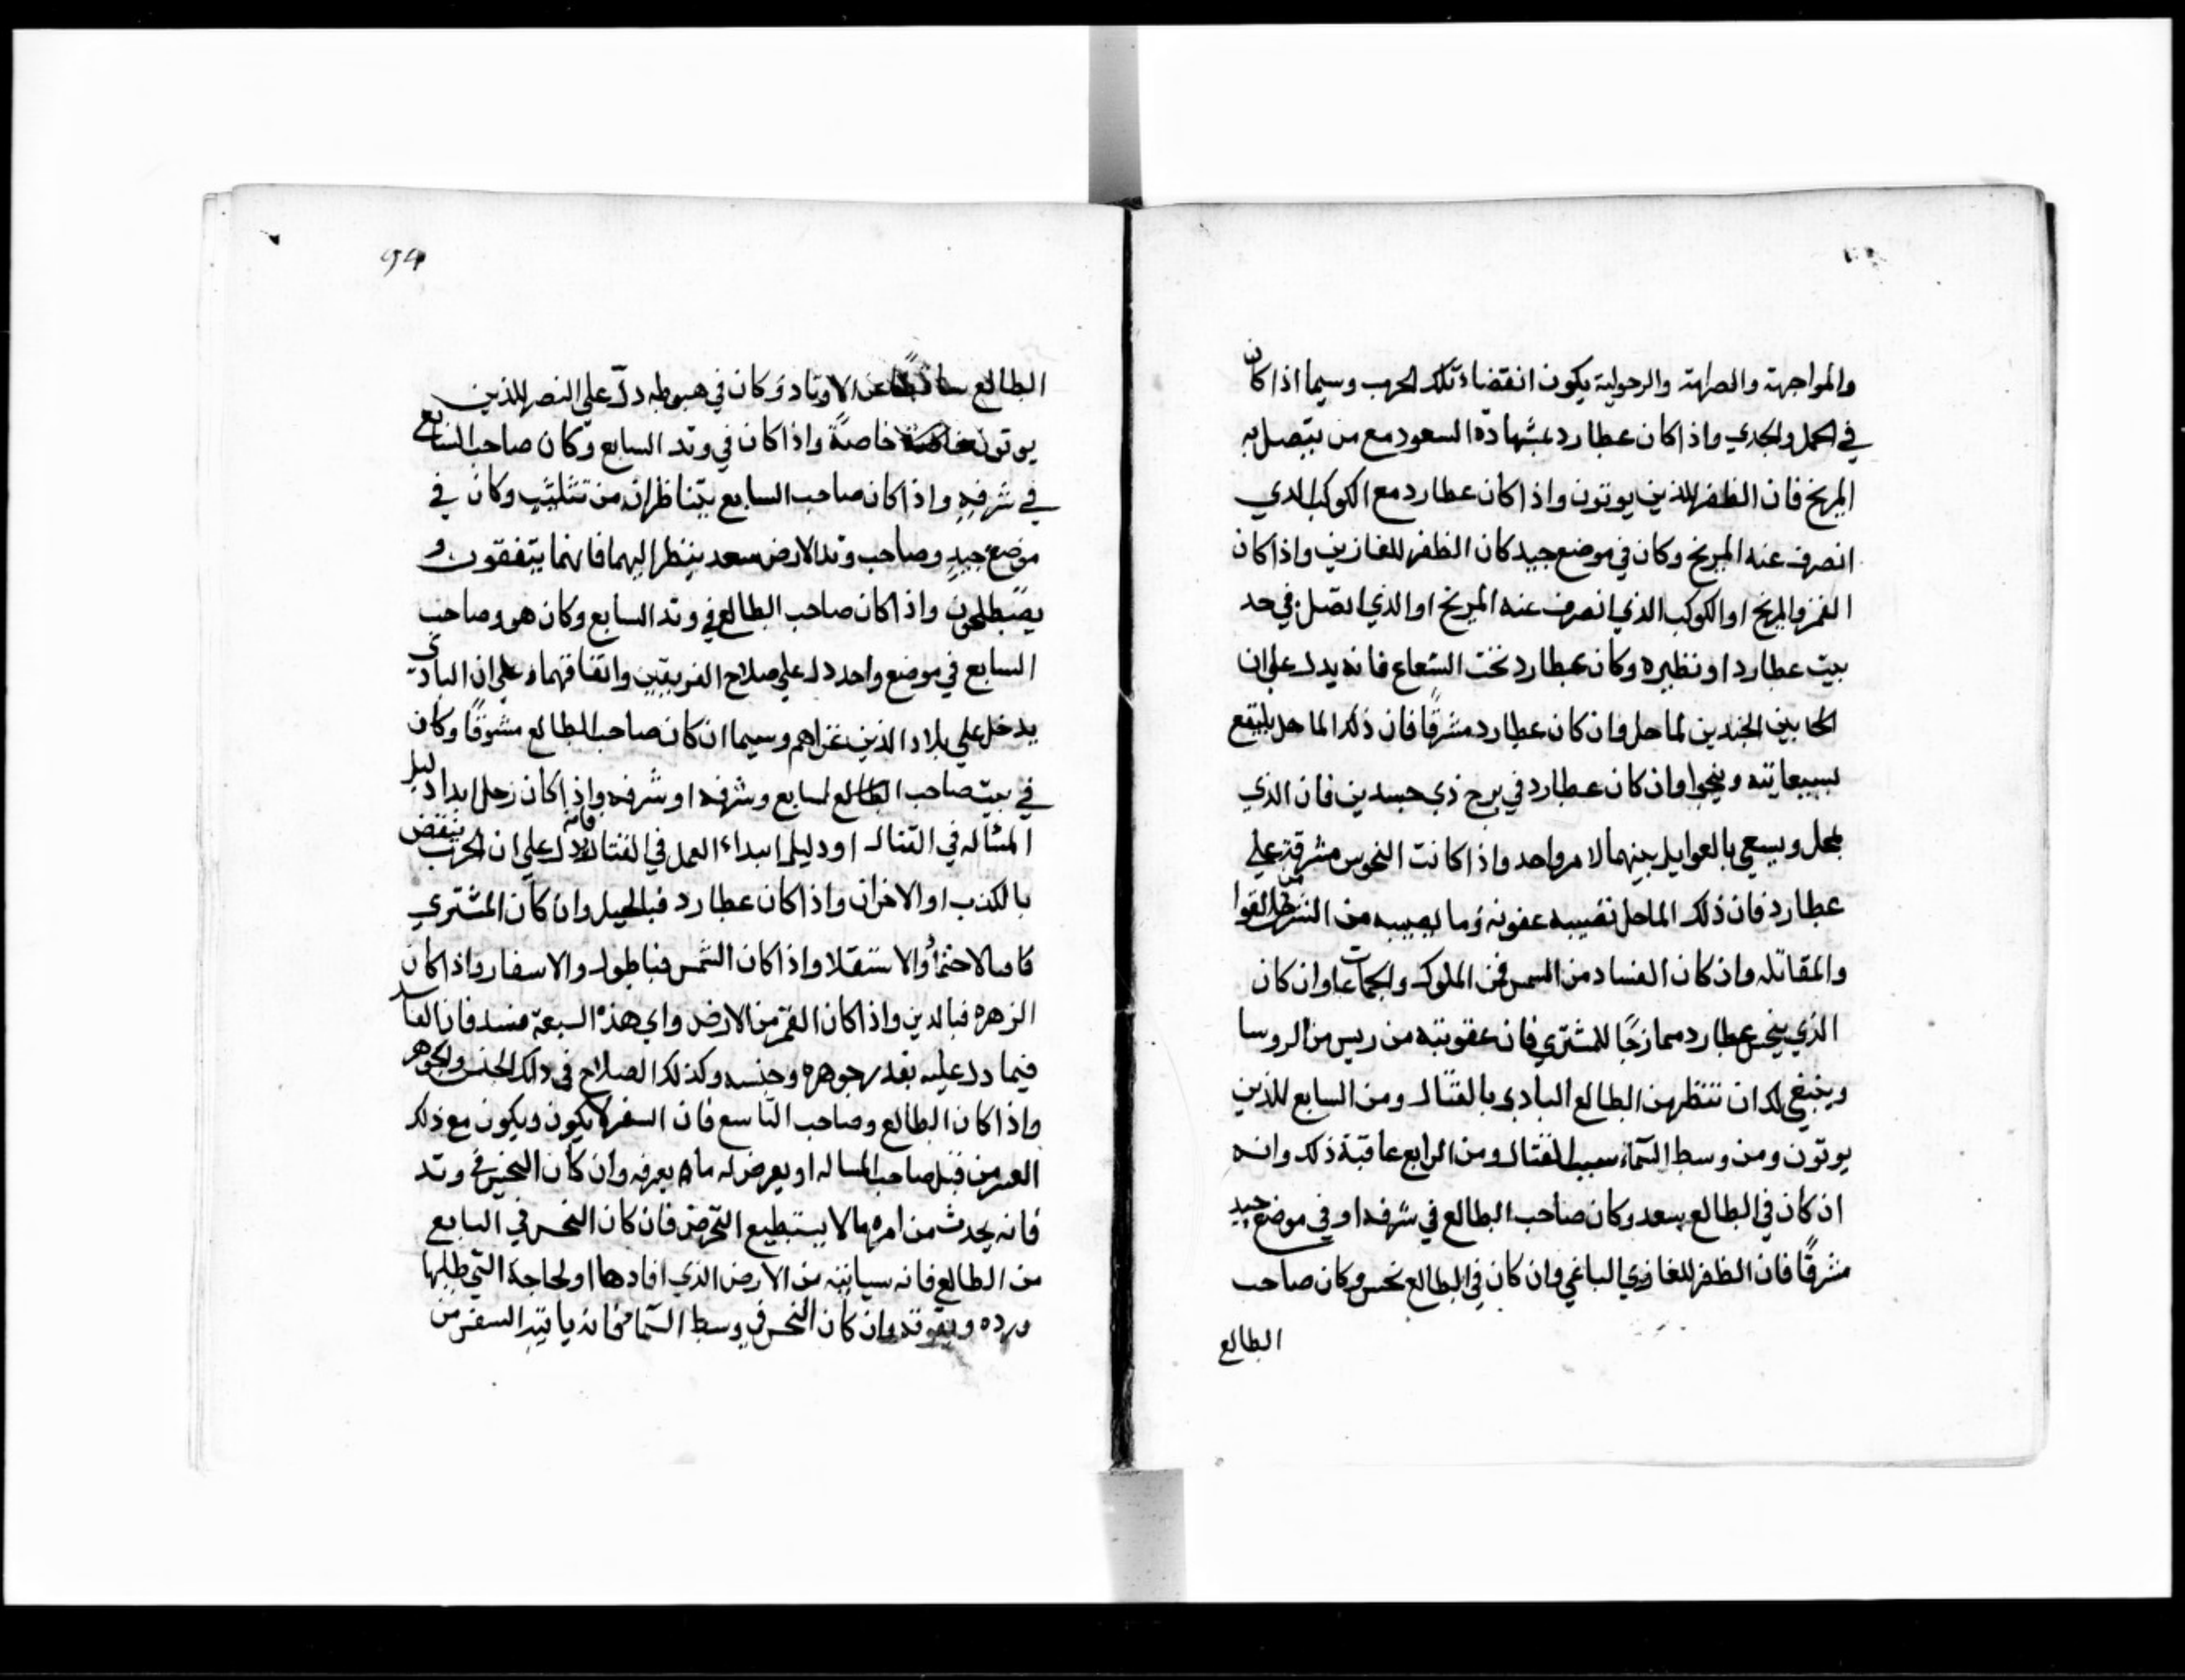 والمواجهة والصرامة والرجولية يكون انقضاء تلك الحرب وسيما اذا كان
في الحمل والجدي واذا كان عطارد بشهادة السعود مع من يتصل به
المريخ فان الظفر للذين يوتون واذا كان عطارد مع الكوكب الدي
انصرف عنه المريخ وكان في موضع جيد كان الظفر للغازين واذا كان
القمر والمريخ او الكوكب الذي انصرف عنه المريخ او الذي اتصل في حد
بيت عطارد او نظيره وكان عطارد تحت الشعاع فانه يدل على ان
الجندين لماحل وان كان عطارد مشرقًا فان ذلك الماحل
بسعايته وينجوا وان كان عطارد في برج ذي جسدين فان الذي
يمحل ويسعي بينهما لامر واحد واذا كانت النحوس مشرقة علي
عطارد فان ذلك الماحل تصيبه عقوبه وما يصيبه من
والمقاتله واذ كان الفساد من الشمس فمن الملوك والجماعات وان كان
الذي ينحس عطارد ممازجًا للمشتري فان عقوبته من ريس من الروسا
وينبغي لك ان تنظر من الطالع البادي بالقتال ومن السابع للذين
يوتون ومن وسط السمآء سبب القتال ومن الرابع عاقبة ذلك وانه
ان كان في الطالع سعد وكان صاحب الطالع في شرفه او في موضع جيد
مشرقًا فان الظفر للغازي الباغي وان كان في الطالع نحس وكان صاحب
الطالع
94
الطالع ساقطًا عن الاوتاد وكان في هبوطه دلّ علي النصر للذين
يوتون خاصةً واذا كان في وتد السابع وكان صاحب السابع
في شرفهِ واذا كان صاحب السابع يتناظران من تثليث وكان في
موضع جيدٍ وصاحب وتد الارض سعد ينظر اليهما فانهما يتفقون و
يصطلحون واذا كان صاحب الطالع في وتد السابع وكان هو وصاحب
السابع في موضع واحد دل علي صلاح الفريقين واتفاقهما علي ان البادي
يدخل علي بلاد الذين غزاهم وسيما ان كان صاحب الطالع مشرقًا وكان
في بيت صاحب السابع وشرفه او شرفه واذا كان زحل ابدا دليل
المساله في القتال او دليل ابتداء العمل في القتال فانه دل علي ان الحرب ينقض
بالكذب او الاخزان واذا كان عطارد فبالحيل وان كان المشتري
والاستقلا واذا كان الشمس والاسفار واذا كان
الزهره فبالدين واذا كان القمر من الارض واي هذه السبعة فسد فان الفساد
فيما دل عليه بقدر جوهره وجنسه وكذلك الصلاح في ذلك الجنس والجوهر
واذا كان الطالع وصاحب التاسع فان السفر لا يكون ويكون مع ذلك
العسر من قبل صاحب المساله او يعرض له ما يعرفه وان كان النحس في وتد
فانه يحدث من امره ما لا يستطيع فان كان النحس في السابع
من الطالع فانه سياتيه من الارض الذي ارادها او لحاجة التي طلبها
ورده وان كان النحس في وسط السمآء فانه ياتيه السفر من